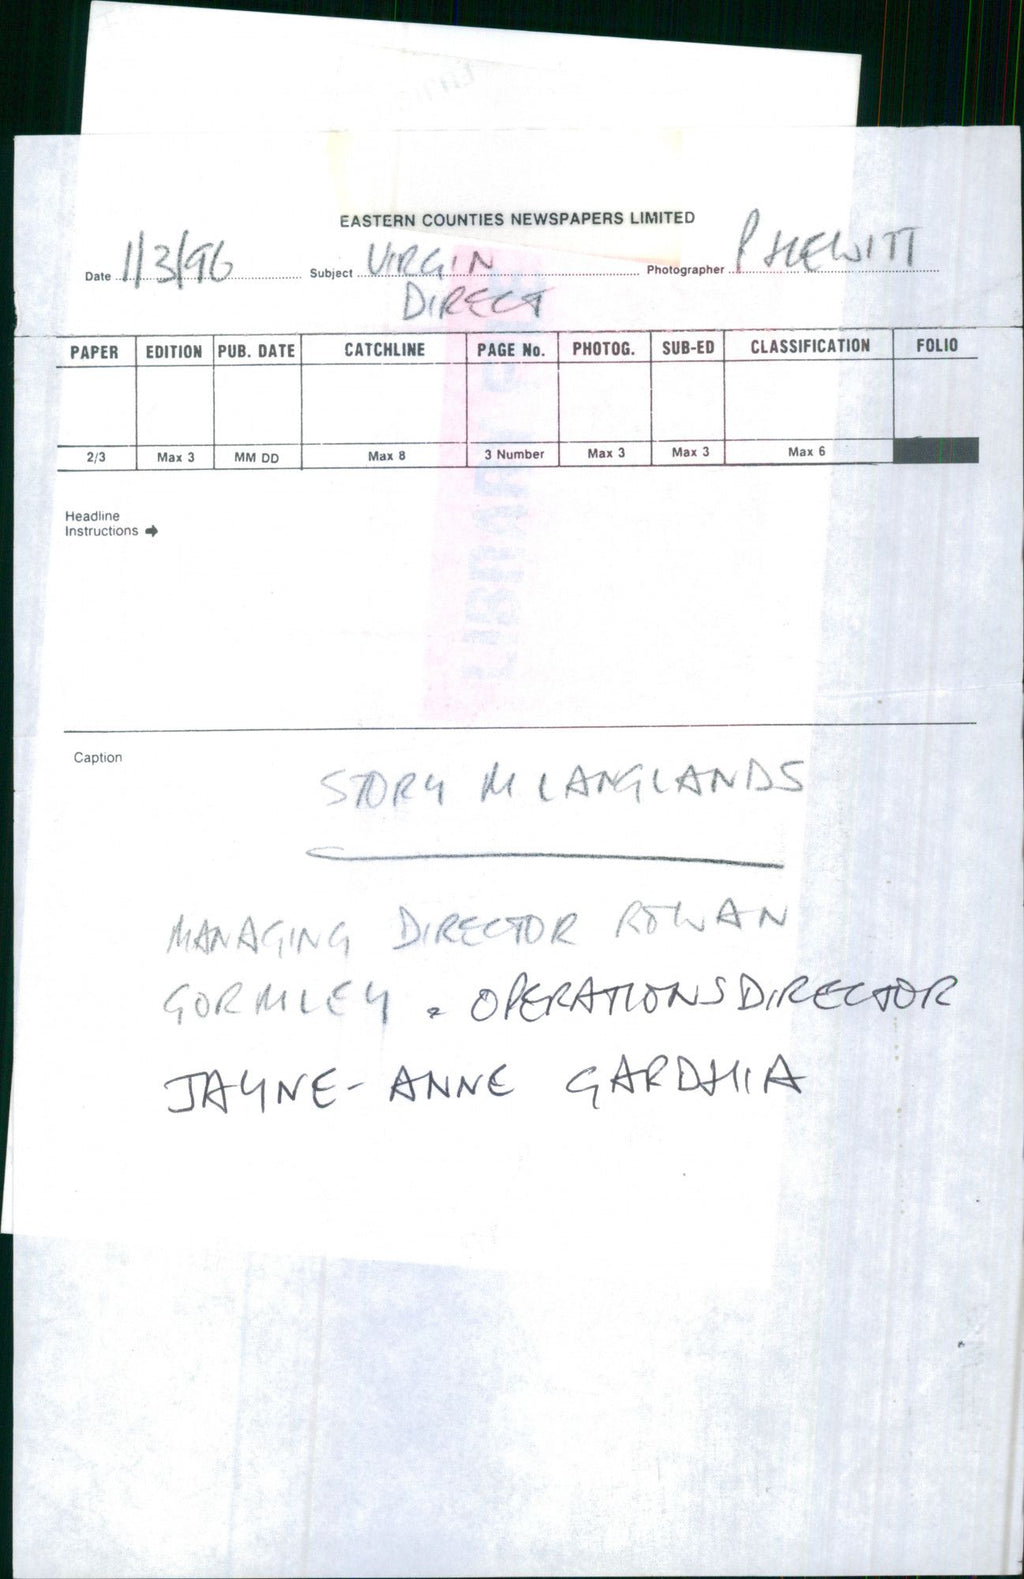 EASTERN COUNTIES NEWSPAPERS LIMITED
Date 1/3/96 Subject VIRGIN Photographer P HEWITT
DIRECT
PAPER EDITION PUB. DATE CATCHLINE PAGE No. PHOTOG. SUB-ED CLASSIFICATION FOLIO
2/3 Max 3 MM DD Max 8 3 Number Max 3 Max 3 Max 6
Headline
Instructions
Caption
STORY M LANGLANDS
MANAGING DIRECTOR ROWAN
GORMLEY & OPERATIONS DIRECTOR
JAYNE-ANNE GARDHIA